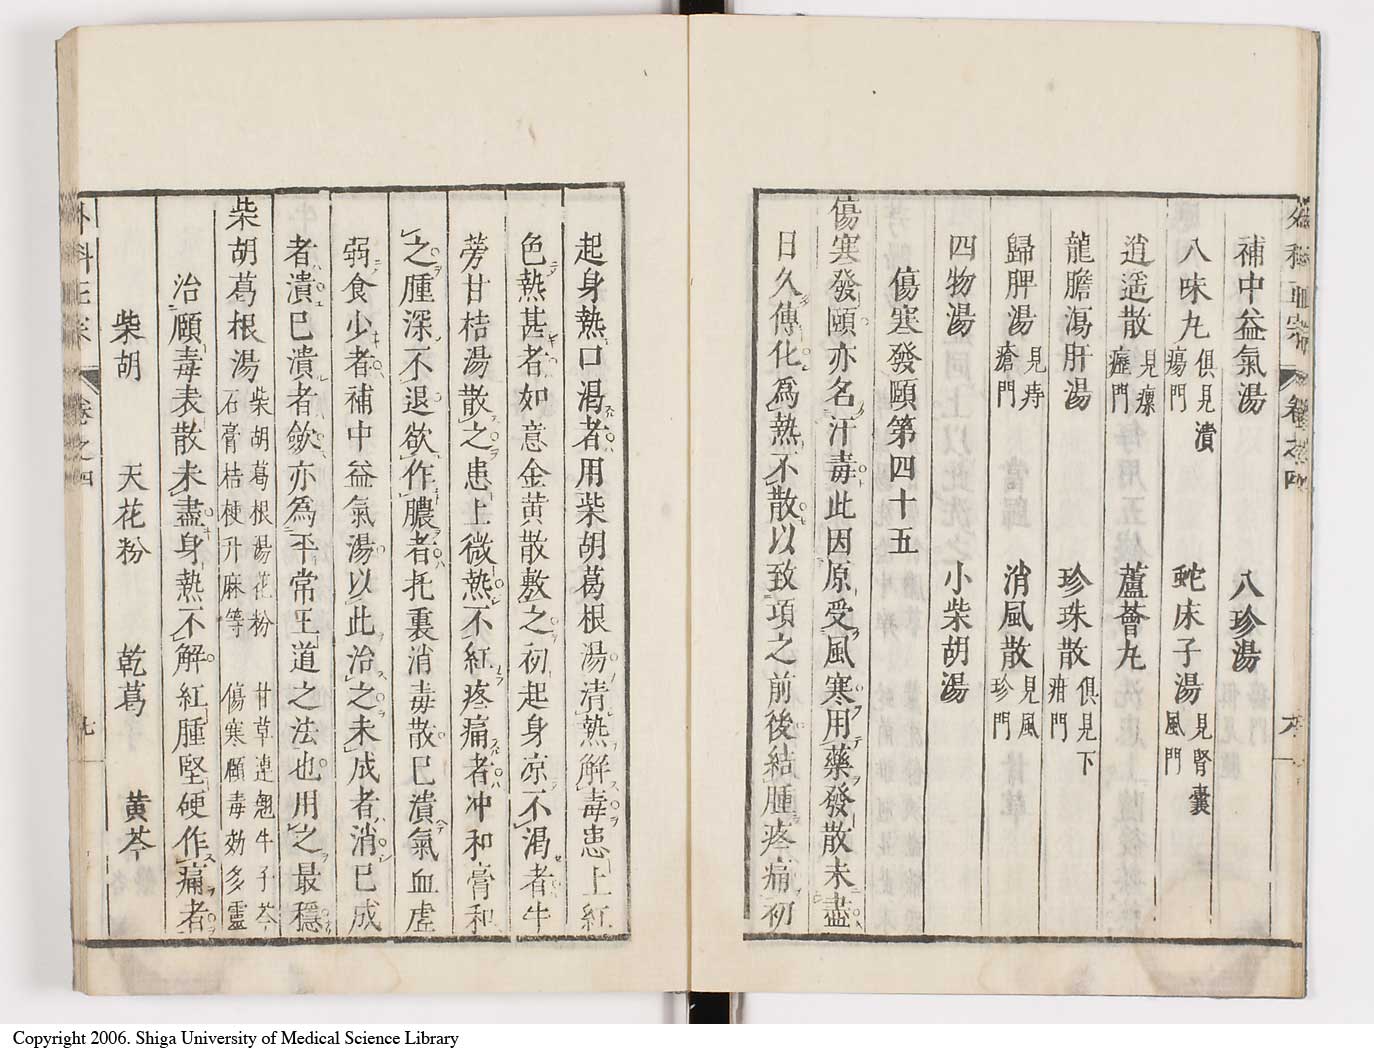 補中益氣湯 八珍湯
八味丸 俱見潰瘍門 蛇床子湯 見腎囊風門
逍遥散 見瘰癧門 蘆薈丸
龍膽瀉肝湯 珍珠散 俱見下疳門
歸脾湯 見痔瘡門 消風散 見風珍門
四物湯 小柴胡湯
傷寒發頤第四十五
傷寒發頤亦名汗毒此因原受風寒用藥發散未盡
日久傳化爲熱不散以致項之前後結腫疼痛初
起身熱口渴者用柴胡葛根湯清熱解毒患上紅
色熱甚者如意金黄散敷之初起身凉不渴者牛
蒡甘桔湯散之患上微熱不紅疼痛者冲和膏和
之腫深不退欲作膿者托裏消毒散已潰氣血虚
弱食少者補中益氣湯以此治之未成者消已成
者潰已潰者斂亦爲平常王道之法也用之最穩
柴胡葛根湯 柴胡葛根湯花粉 甘草連翹牛子芩
石膏桔梗升麻等 傷寒頤毒効多靈
治頤毒表散未盡身熱不解紅腫堅硬作痛者
柴胡 天花粉 乾葛 黄芩
外科正宗 卷之四 九
Copyright 2006. Shiga University of Medical Science Library